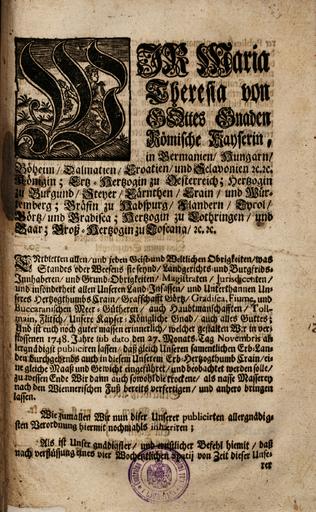 WIR Maria
Theresia von
GOttes Gnaden
Römische Kayserin,
in Germanien/ Hungarn/
Böheim/ Dalmatien/ Croatien/ und Sclavonien ꝛc. ꝛc.
Königin; Ertz-Hertzogin zu Oesterreich; Hertzogin
zu Burgund/ Steyer/ Cärnthen/ Crain/ und Wür-
temberg; Gräfin zu Habspurg/ Flandern/ Tyrol/
Görtz/ und Gradisca; Hertzogin zu Lothringen/ und
Baar; Groß-Hertzogin zu Toscana/ ꝛc. ꝛc.
ENtbietten allen/ und jeden Geist- und Weltlichen Obrigkeiten/ was
Standes oder Weesens sie seynd/ Landgerichts- und Burgfrids-
Innhaberen/ und Grund-Obrigkeiten/ Magistraten/ Jurisdicenten/
und insonderheit allen Unseren Land-Insassen/ und Unterthannen Un-
seres Hertzogthumbs Crain/ Grafschafft Görtz/ Gradisca, Fiume, und
Buccaranischen Meer-Gütheren/ auch Haubtmannschafften/ Toll-
main, Flitsch/ Unsere Kayser-Königliche Gnad/ auch alles Guttes;
Und ist euch noch guter massen erinnerlich/ welcher gestalten Wir in ver-
flossenen 1748. Jahre sub dato den 27. Monats-Tag Novembris al-
lergnädigist publiciren lassen/ daß gleich Unseren samentlichen Erb-Lan-
den durchgehends auch in diesem Unseren Erb-Hertzogthumb Crain/ ei-
ne gleiche Maaß und Gewicht eingeführet/ und beobachtet werden solle/
zu dessen Ende Wir dann auch sowohl die treckene/ als nasse Massereyen
nach den Wiennerischen Fuß bereits verfertigen/ und anhero bringen
lassen.
Wie zumallen Wir nun diser Unserer publicirten allergnädig-
sten Verordnung hiermit nochmahls inhæriren;
Als ist Unser gnädigster/ und ernstlicher Befehl hiemit/ daß
nach verfliessung eines vier Wochentlichen Spatij von Zeit dieser Unse-
rer